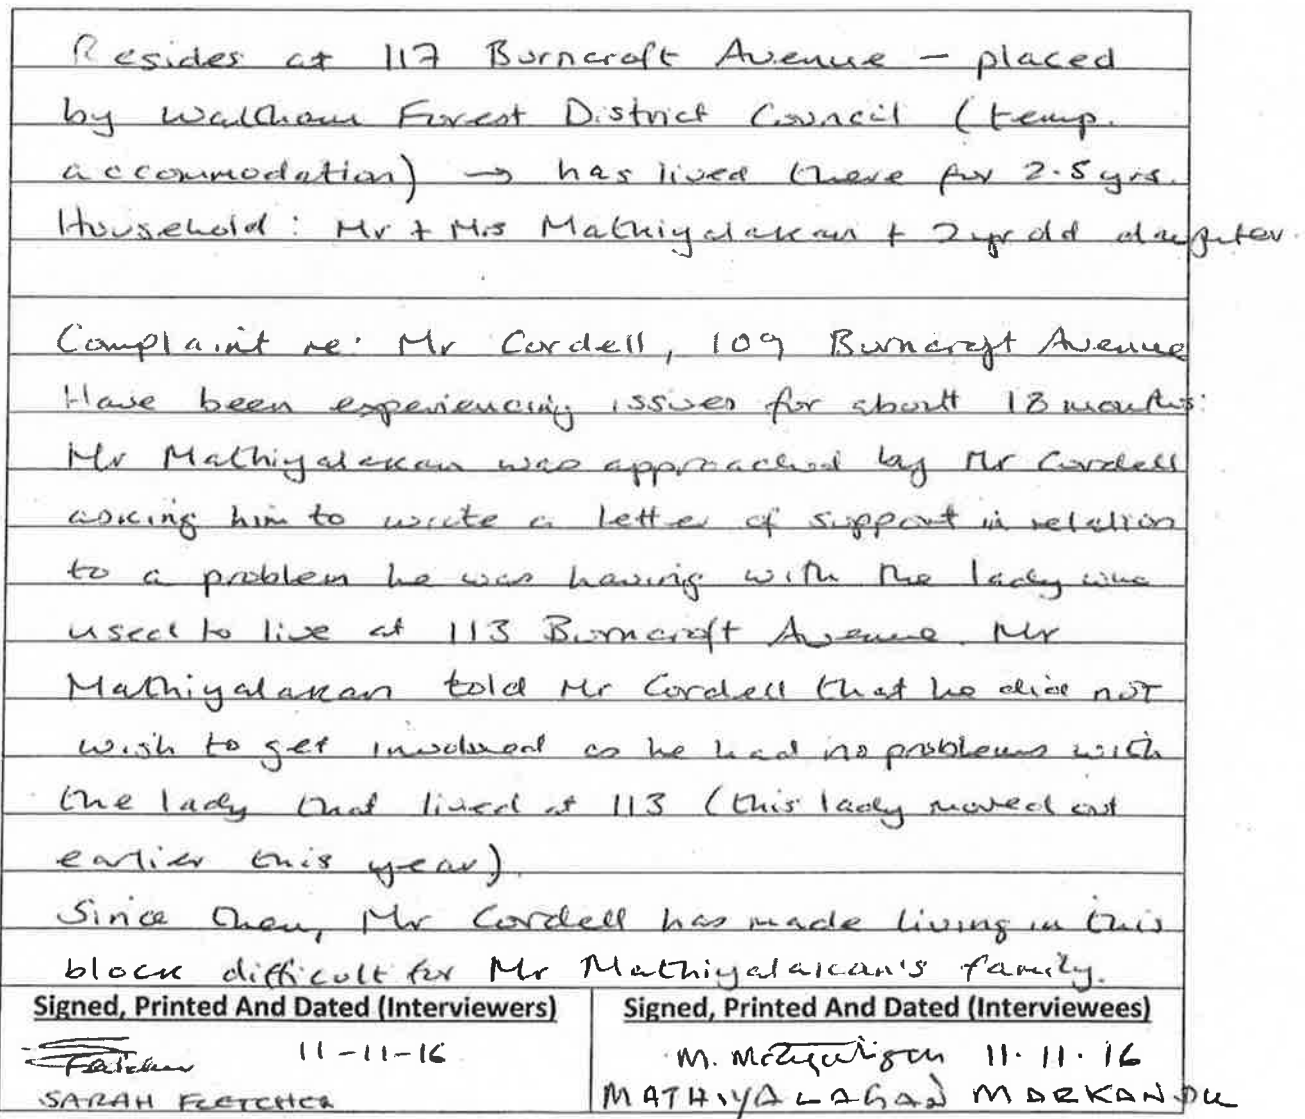 Resides at 117 Burncroft Avenue – placed
by Waltham Forest District Council (temp.
accommodation) → has lived there for 2.5 yrs.
Household: Mr + Mrs Mathiyalakan + 2 yr old daughter.
Complaint re: Mr Cordell, 109 Burncroft Avenue
Have been experiencing issues for about 18 months:
Mr Mathiyalakan was approached by Mr Cordell
asking him to write a letter of support in relation
to a problem he was having with the lady who
used to live at 113 Burncroft Avenue. Mr
Mathiyalakan told Mr Cordell that he did not
wish to get involved as he had no problems with
the lady that lived at 113 (this lady moved out
earlier this year).
Since then, Mr Cordell has made living in this
block difficult for Mr Mathiyalakan's family.
Signed, Printed And Dated (Interviewers)
Signed, Printed And Dated (Interviewees)
Fletcher 11-11-16
M. 11.11.16
SARAH FLETCHER
MATHIYALAGAN MARKANDU